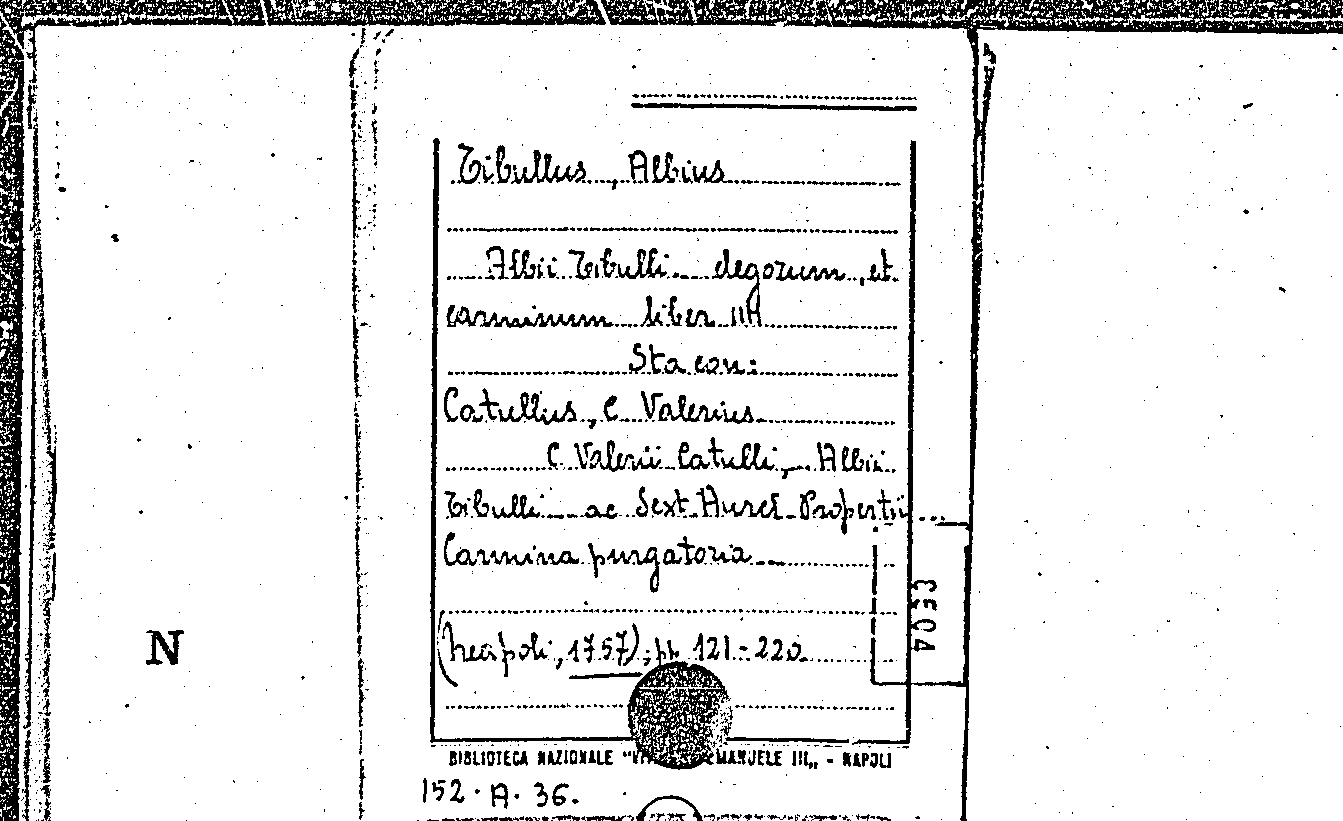 Tibullus, Albius
Albii Tibulli elegorum, et
carminum liber IIII
Sta con:
Catullus, C Valerius
C Valerii Catulli, Albii
Tibulli ac Sext Aurel Propertii ...
Carmina purgatoria
(Neapoli, 1757); pp. 121-220
N
CE04
BIBLIOTECA NAZIONALE EMANUELE III,, - NAPOLI
152 · A · 36.